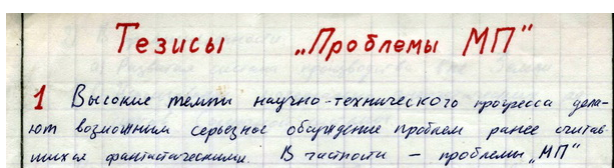 Тезисы „Проблемы МП"
1 Высокие темпы научно-технического прогресса дела-
ют возможным серьезное обсуждение проблем ранее считав
шихся фантастическими. В частности – проблемы „МП"